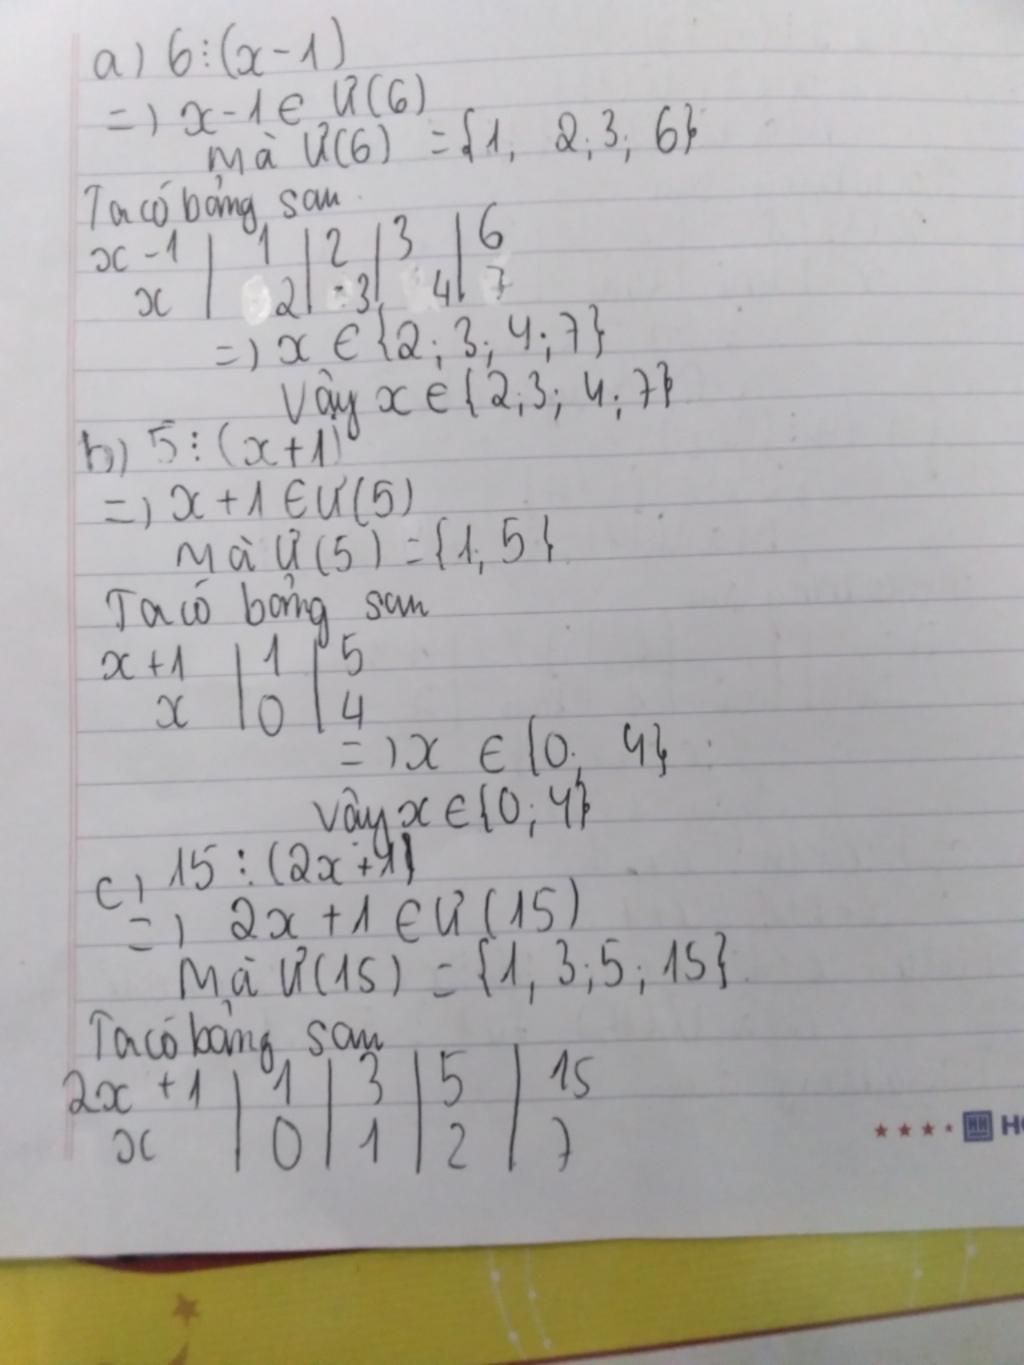 a) 6⋮(x-1)
=) x-1 ∈ Ư(6)
Mà Ư(6) = {1, 2; 3; 6}
Ta có bảng sau
x-1 | 1 | 2 | 3 | 6
x | 2 | 3 | 4 | 7
=) x ∈ {2; 3; 4; 7}
Vậy x ∈ {2;3; 4; 7}
b) 5⋮(x+1)
=) x+1 ∈ Ư(5)
Mà Ư(5) = {1; 5}
Ta có bảng sau
x+1 | 1 | 5
x | 0 | 4
=) x ∈ {0; 4}
Vậy x ∈ {0; 4}
c) 15⋮(2x+1)
=) 2x+1 ∈ Ư(15)
Mà Ư(15) = {1, 3; 5; 15}
Ta có bảng sau
2x+1 | 1 | 3 | 5 | 15
x | 0 | 1 | 2 | 7